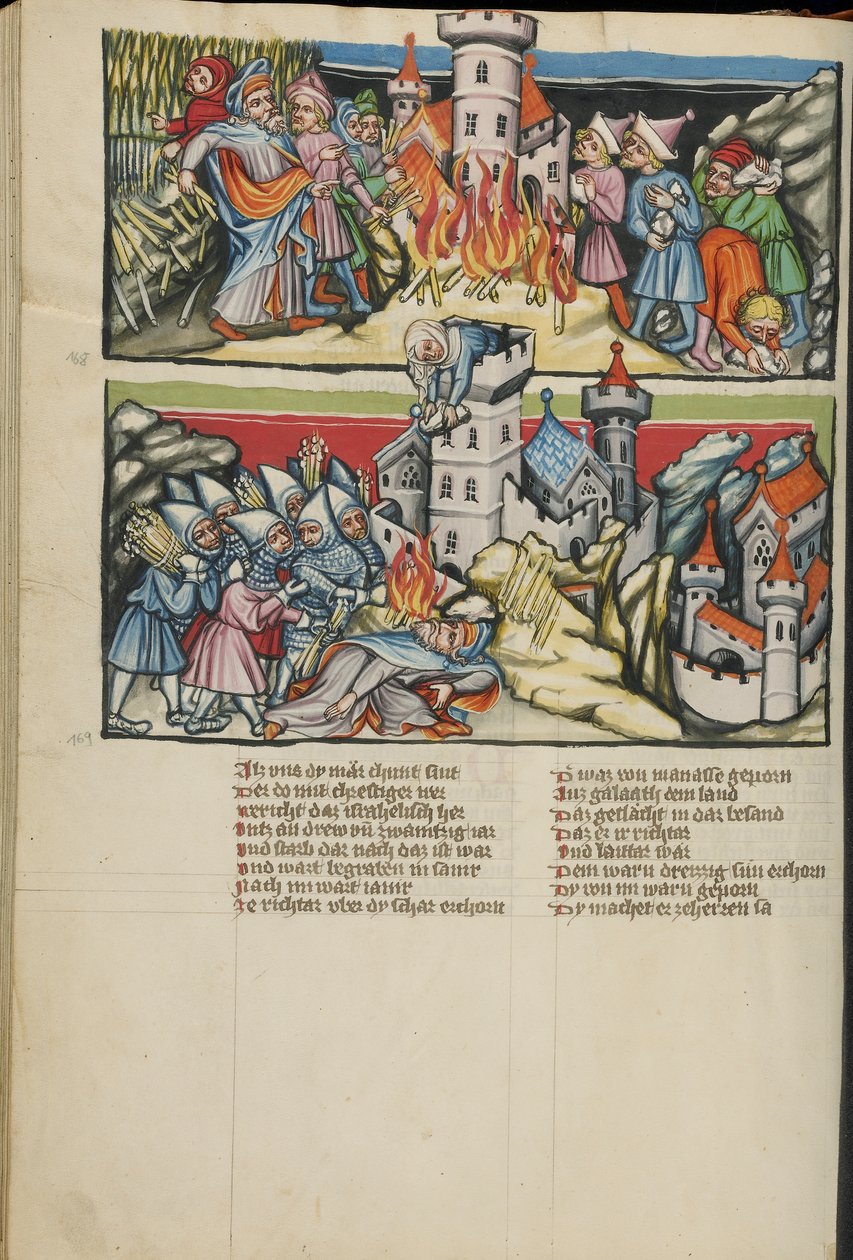 168
169
Alz vns dy mär chunt sint
Der do mit chreftiger wer
Bericht daz israhelisch her
Vntz an drew vnd zwaintzig iar
Vnd starb dar nach daz ist war
Vnd wart begraben in samir
Nach im wart iamir
Ze richtar vber dy schar erchorn
D waz von manasse geporn
Auz galaath dem land
Daz geslächt in dar besand
Daz er ir richtar
Vnd lauttar war
Dem warn dreizzig sün erchorn
Dy von im warn geporn
Dy machet er ze herren sa